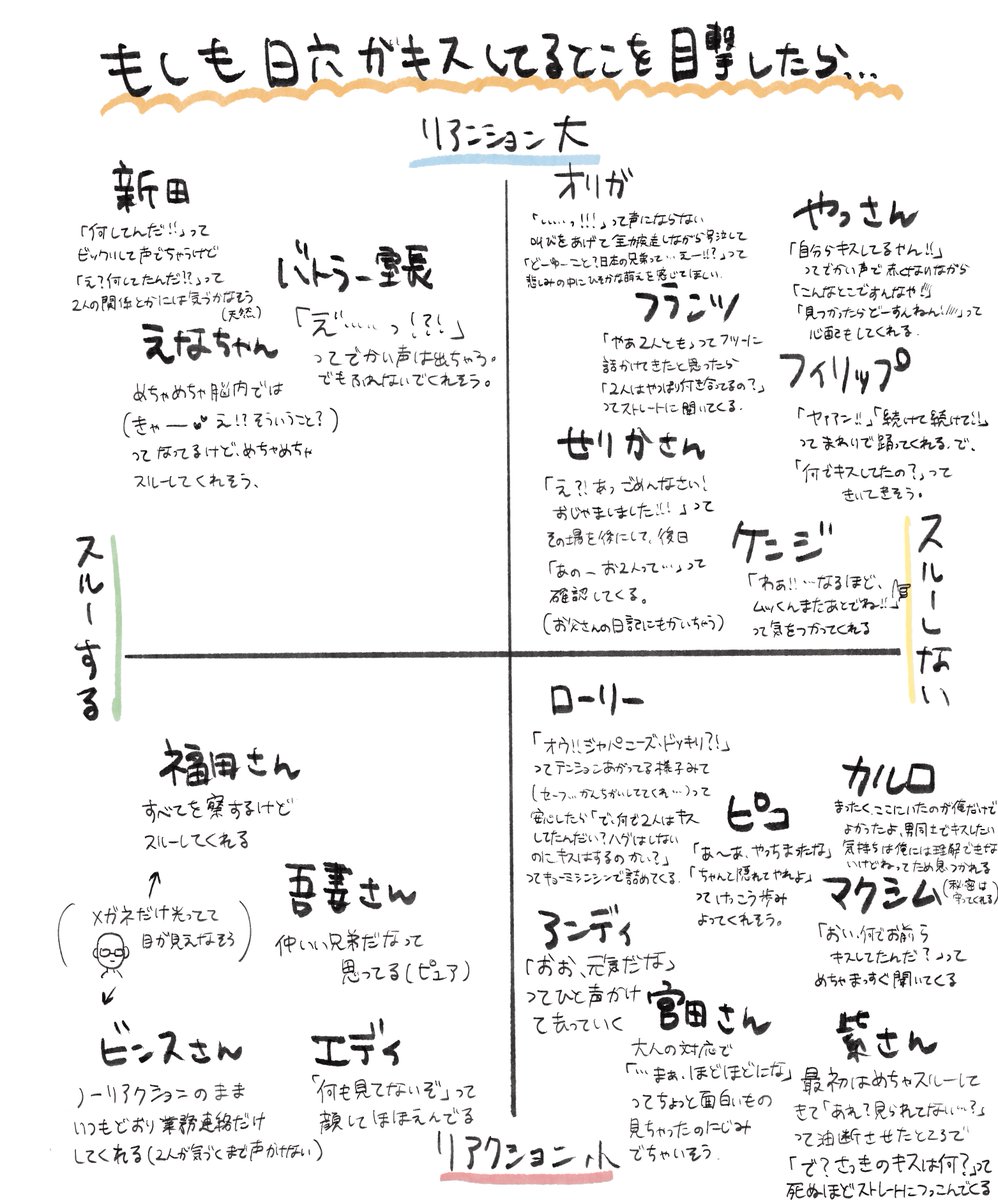 もしも日穴がキスしてるとこを目撃したら…
リアクション大
新田
「何してんだ!!」って
ビックリして声でちゃうけど
「え?何してたんだ!?」って
2人の関係とかには気づかなそう
(天然)
バトラー室長
「え゛……っ!?!」
ってでかい声は出ちゃう。
でもふれないでくれそう。
えなちゃん
めちゃめちゃ脳内では
(きゃー💕え!?そういうこと?)
ってなってるけど、めちゃめちゃ
スルーしてくれそう、
オリガ
「……っ!!!」って声にならない
叫びをあげて全力疾走しながら号泣して
「どーゆーこと?日本の兄弟って…えー!!?」って
悲しみの中にひそかな萌えを感じてほしい.
やっさん
「自分らキスしてるやん!!」
ってでかい声で赤くなりながら
「こんなとこですんなや!!」
「見つかったらどーすんねん!///」って
心配もしてくれる.
フランツ
「やあ2人とも」ってフツーに
話かけてきたと思ったら
「2人はやっぱり付き合ってるの?」
ってストレートに聞いてくる.
フィリップ
「ヤァァン!!」「続けて続けて!!」
ってまわりで踊ってくれる、で、
「何でキスしてたの?」って
きいてきそう。
せりかさん
「え?!あっごめんなさい!
おじゃましました!!!」って
その場を後にして、後日
「あのーお2人って…」って
確認してくる。
(お父さんの日記にもかいちゃう)
ケンジ
「わぁ!!…なるほど、
ムッくんまたあとでね!!」
って気をつかってくれる
スルーする
スルーしない
福田さん
すべてを察するけど
スルーしてくれる
(メガネだけ光ってて
目が見えなそう)
吾妻さん
仲いい兄弟だなって
思ってる(ピュア)
ビンスさん
ノーリアクションのまま
いつもどおり業務連絡だけ
してくれる(2人が気づくまで声かけない)
エディ
「何も見てないぞ」って
顔してほほえんでる
ローリー
「オウ!!ジャパニーズ・ドッキリ?!」
ってテンションあがってる様子みて
(セーフ…かんちがいしててくれ…)って
安心したら「で、何で2人はキス
してたんだい?ハグはしない
のにキスはするのかい?」
ってキョーミシンシンで詰めてくる.
ピコ
「あ〜あ、やっちまったな」
「ちゃんと隠れてやれよ」
ってけっこう歩み
よってくれそう。
カルロ
まったく、ここにいたのが俺だけで
よかったよ、男同士でキスしたい
気持ちは俺には理解できな
いけどねってため息つかれる
(秘密は
守ってくれる)
マクシム
「おい、何でお前ら
キスしてたんだ?」って
めちゃまっすぐ聞いてくる
アンディ
「おお、元気だな」
ってひと声かけ
て去っていく
宮田さん
大人の対応で
「…まぁ、ほどほどにな」
ってちょっと面白いもの
見ちゃったのにじみ
でちゃいそう.
紫さん
最初はめちゃスルーして
きて「あれ?見られてない…?」
って油断させたところで
「で?さっきのキスは何?」って
死ぬほどストレートにつっこんでくる
リアクション小